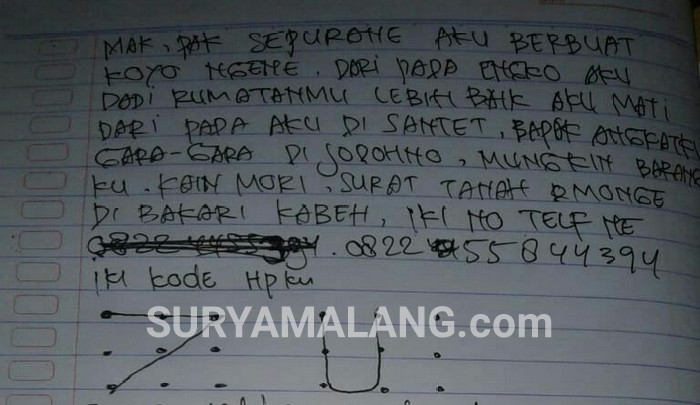 MAK, PAK SEPURANE AKU BERBUAT
KOYO NGENE. DARI PADA ENGKO AKU
DADI RUMATANMU LEBIH BAIK AKU MATI
DARI PADA AKU DI SANTET, BAPAK ANGKATKU
GARA-GARA DI JODOHNO, MUNGKIN BARANG
KU. KAIN MORI, SURAT TANAH RMONGE
DI BAKARI KABEH, IKI NO TELF NE
.0822 55844394
IKI KODE HPKU
SURYAMALANG.com